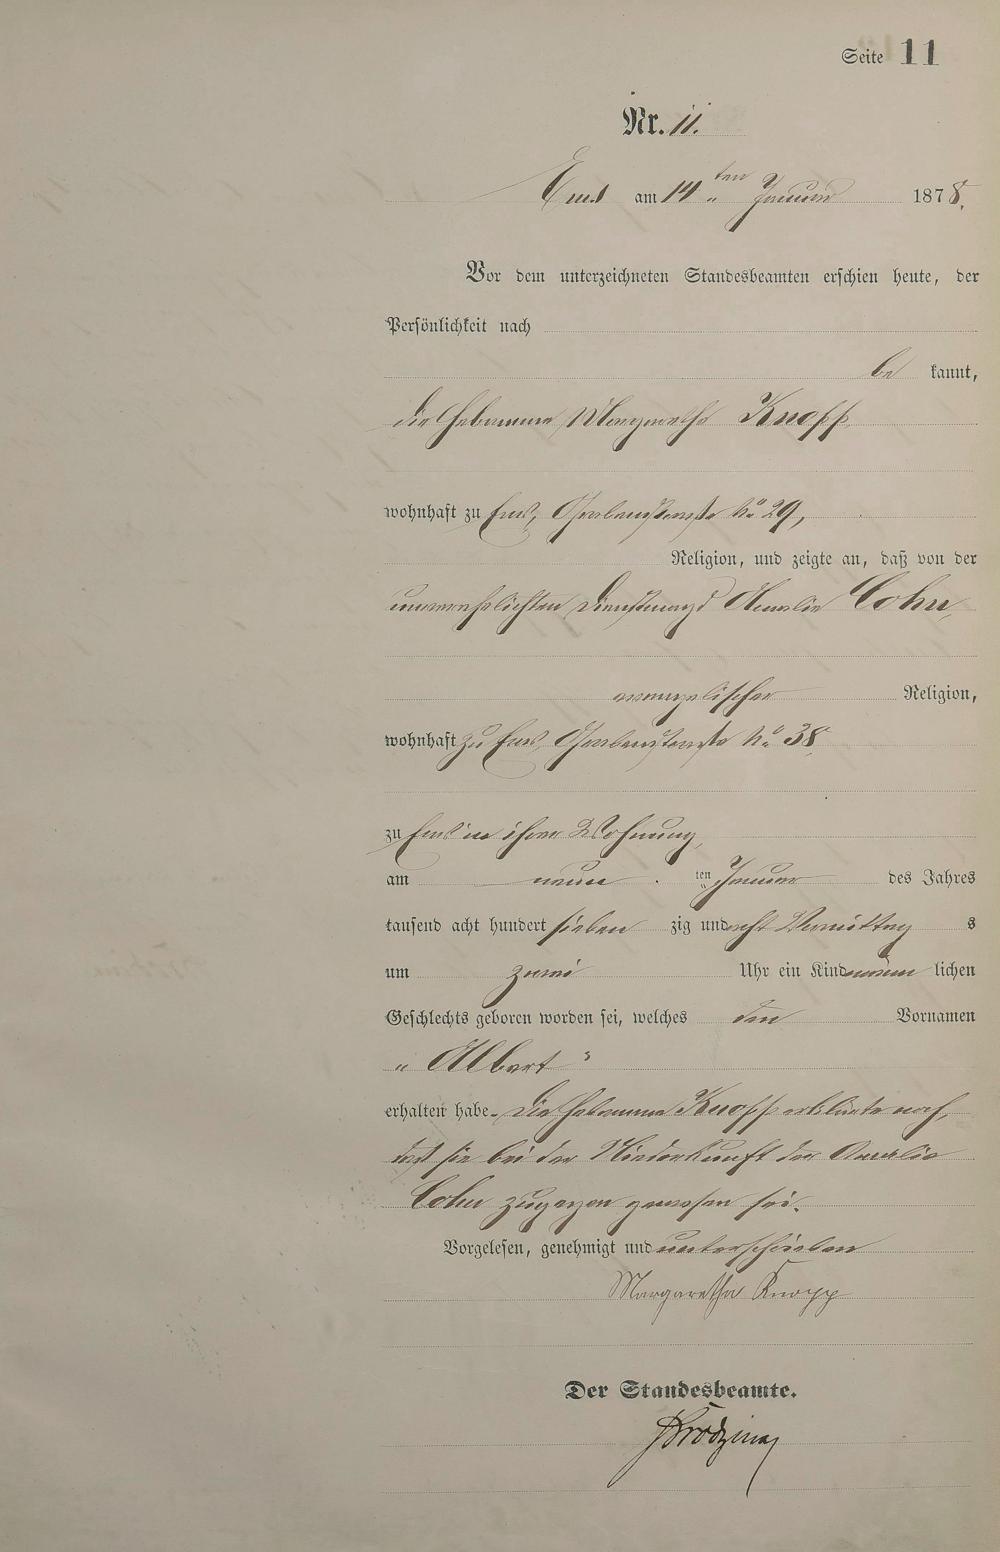 Seite 11
Nr. 11.
Ems am 14ten Januar 1878.
Vor dem unterzeichneten Standesbeamten erschien heute, der
Persönlichkeit nach
be kannt,
die Hebamme Margaretha Knopp
wohnhaft zu Ems, Grabenstraße No 29,
Religion, und zeigte an, daß von der
unverehelichten Dienstmagd Amalie Cohn,
evangelischer Religion,
wohnhaft zu Ems, Grabenstraße No 38,
zu Ems in ihrer Wohnung,
am neun ten Januar des Jahres
tausend acht hundert sieben zig und acht Vormittag s
um zwei Uhr ein Kind männ lichen
Geschlechts geboren worden sei, welches den Vornamen
„Albert"
erhalten habe. Die Hebamme Knopp erklärte noch,
daß sie bei der Niederkunft der Amalie
Cohn zugegen gewesen sei.
Vorgelesen, genehmigt und unterschrieben
Margaretha Knopp
Der Standesbeamte.